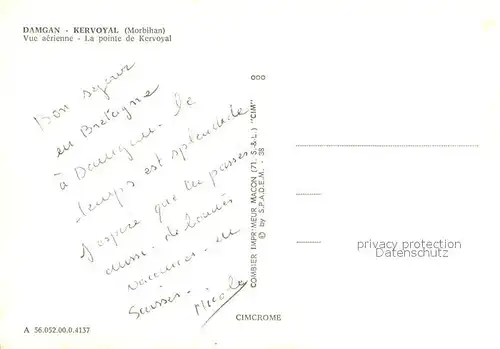 DAMGAN - KERVOYAL (Morbihan)
Vue aérienne - La pointe de Kervoyal
Bon séjour
en Bretagne
à Damgan. le
temps est splendide
J'espère que tu passes
aussi de bonnes
vacances en
Suisse.
Nicole
COMBIER IMPRIMEUR MACON (71. S.-&L.) "CIM"
© by S.P.A.D.E.M. - 38
CIMCROME
A 56.052.00.0.4137
privacy protection
Sammlerdatenbank